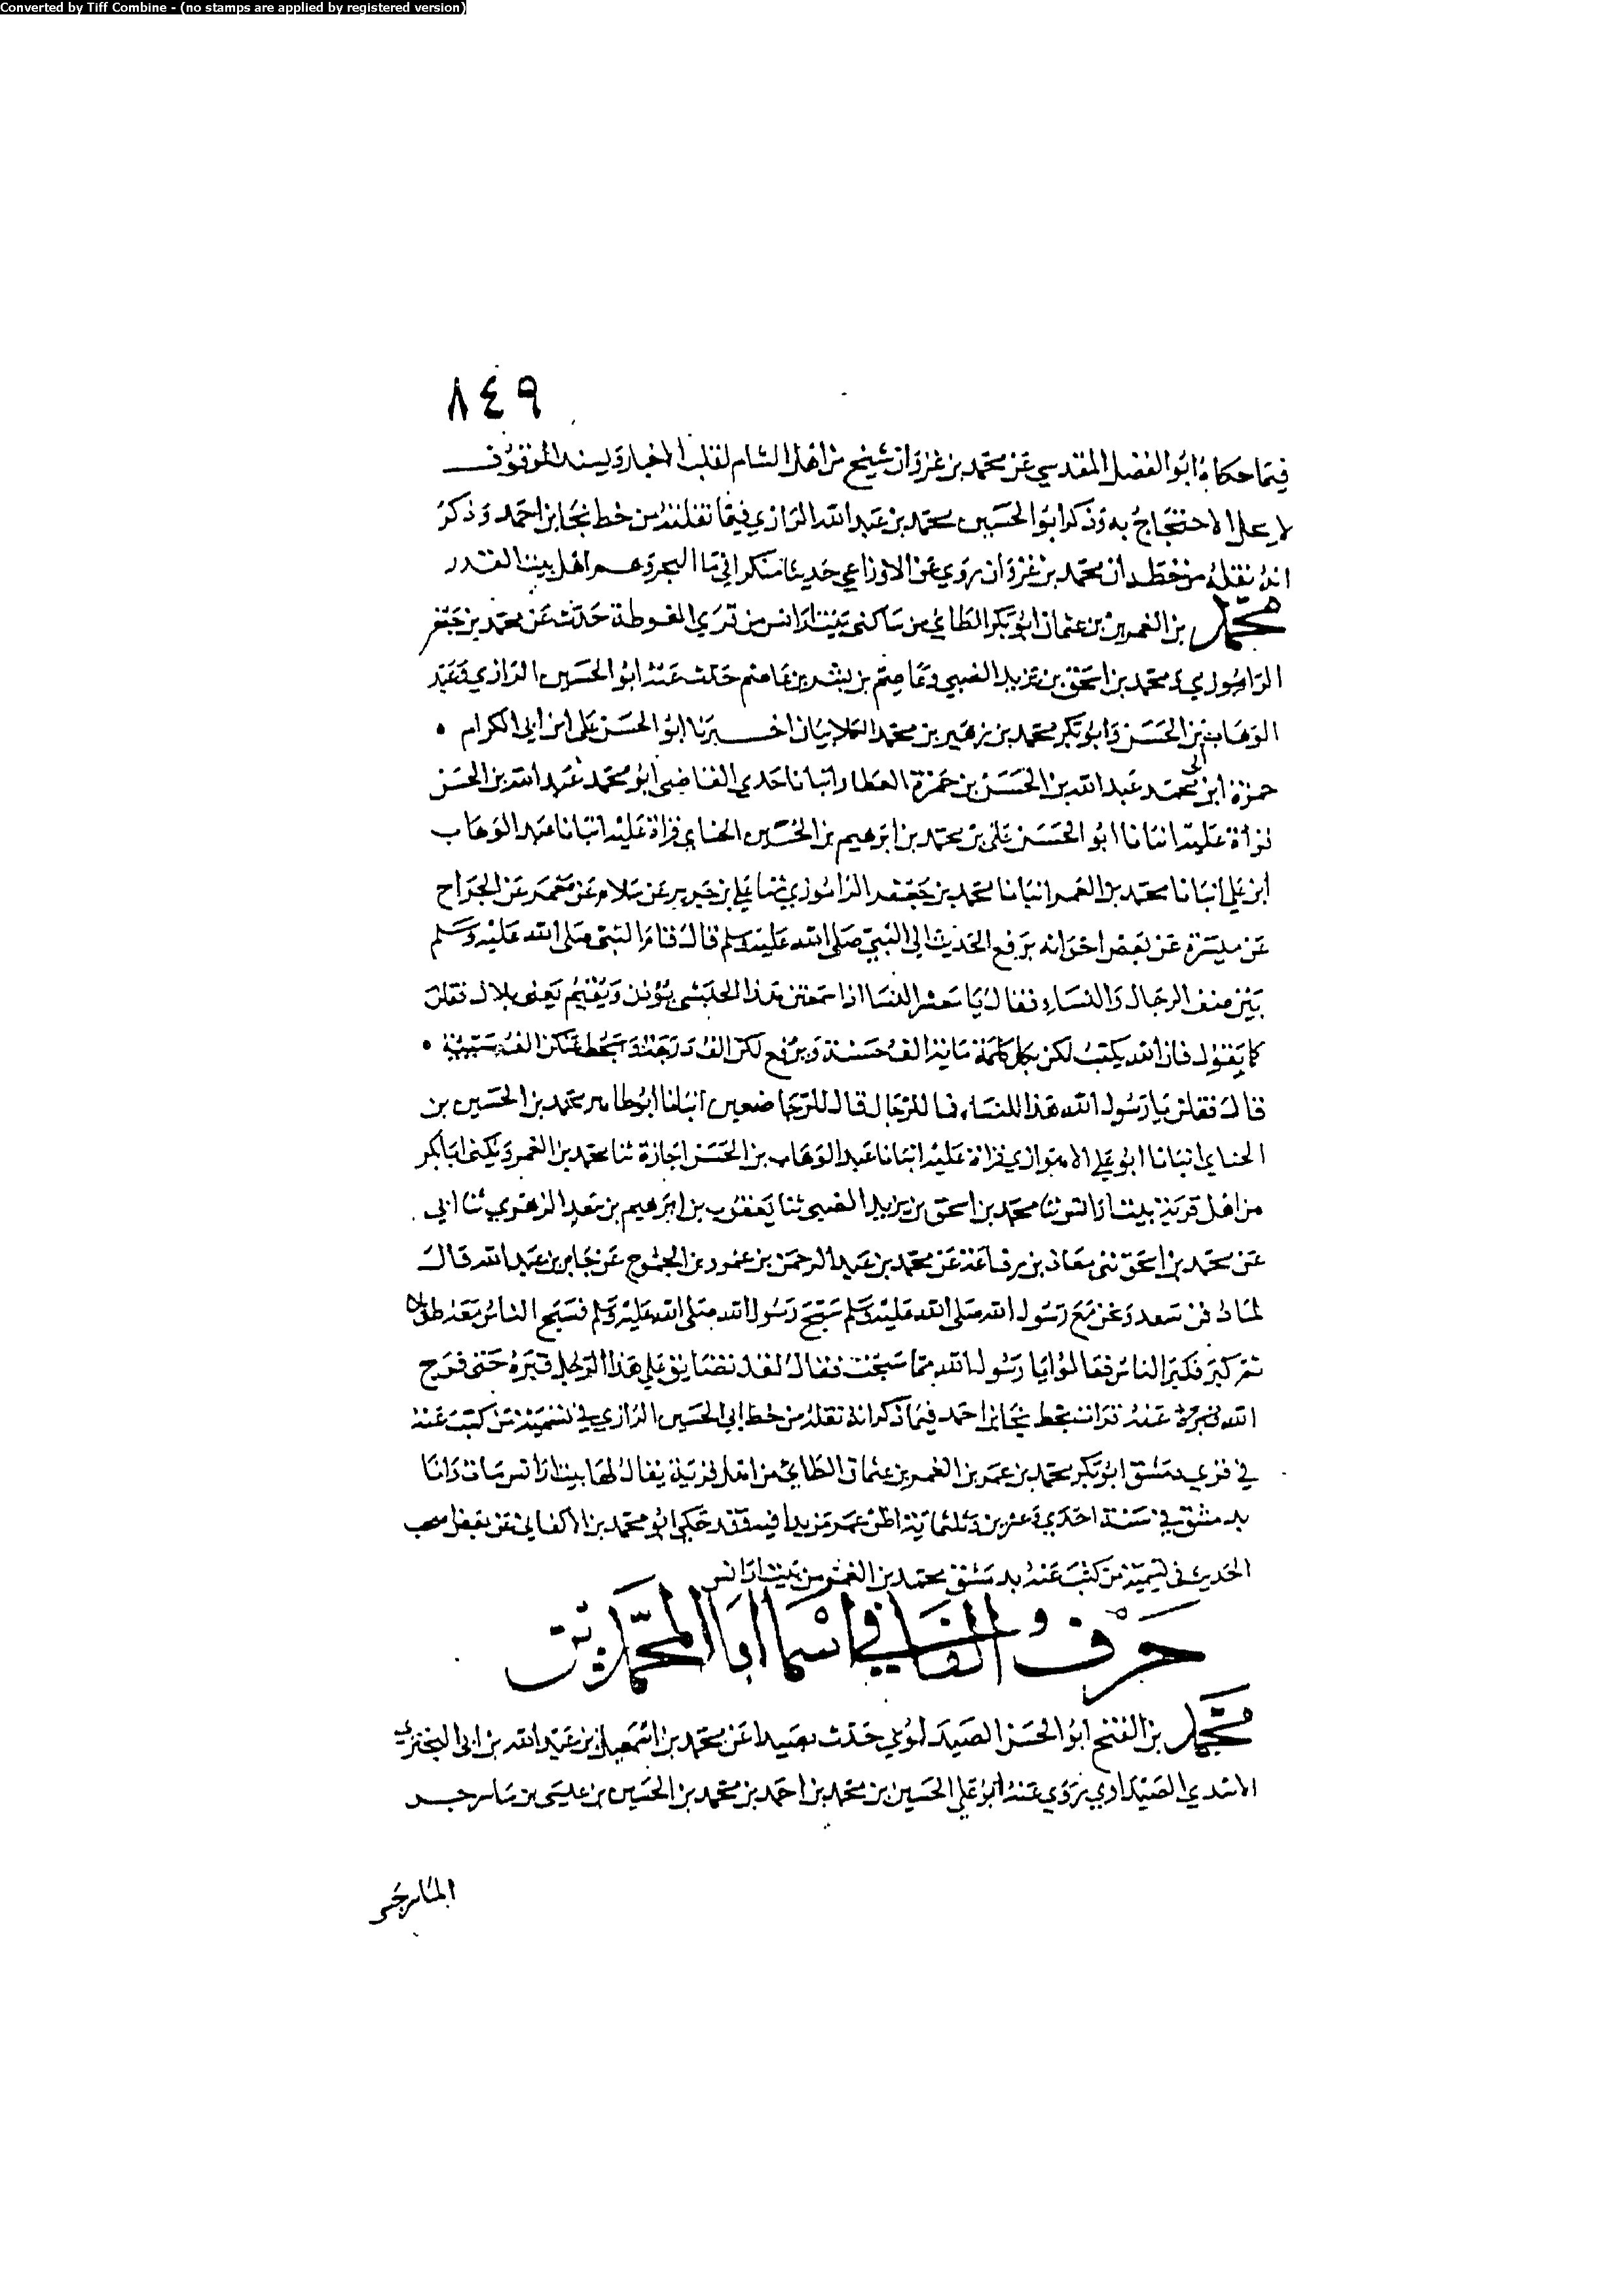 Converted by Tiff Combine - (no stamps are applied by registered version)
٨٤٩
فيما حكاه ابو الفضل المقدسي عن محمد بن غزوان شيخ من اهل الشام لقلب الاخبار ويسند الموقوف
لا يحل الاحتجاج به وذكر ابو الحسين محمد بن عبد الله الرازي فيما نقلته من خط نجا بن احمد وذكر
انه نقله من خطه ان محمد بن غزوان روى عن الاوزاعي حديثا منكرا في ما البحر وهم اهل بيت القدر
محمد بن الغمر بن عثمان ابو بكر الطائي من ساكني بيت ارانس من قرى الغوطة حدث عن محمد بن جعفر
الراموزي ومحمد بن اسحق بن يزيد الضبي وعاصم بن بشر بن عاصم حدث عنه ابو الحسين الرازي وعبد
الوهاب بن الحسن وابو بكر محمد بن زهير بن محمد الكلابيان اخبرنا ابو الحسن على ابن ابي الكرام
حمزة ابن محمد عبد الله بن الحسن بن حمزة العطار انبانا جدي القاضي ابو محمد عبد الله بن الحسن
قراة عليه انبانا ابو الحسن علي بن محمد بن ابرهيم بن الحسين الحناي قراة عليه انبانا عبد الوهاب
ابن علي انبانا محمد بن الغمر انبانا محمد بن جعفر الراموزي ثنا علي بن جرير عن سلام عن معمر عن الجراح
عن ميسرة عن بعض اخوانه يرفع الحديث الى النبي صلى الله عليه وسلم قال قام النبي صلى الله عليه وسلم
بين صف الرجال والنساء فقال يا معشر النسا اذا سمعتن هذا الحبشي يؤذن ويقيم يعني بلال فقلن
كما يقول فان الله يكتب لكن بكل كلمة ماية الف حسنة ويرفع لكن الف درجة ويحط عنكن الف سيية
قال فقلن يا رسول الله هذا للنساء فما للرجال قال للرجا ضعفين انبانا ابو طاهر محمد بن الحسين بن
الحناي انبانا ابو علي الاهوازي قراة عليه انبانا عبد الوهاب بن الحسن اجازة ثنا محمد بن الغمر ويكنى ابا بكر
من اهل قرية بيت ارانس ثنا محمد بن اسحق بن يزيد الضبي ثنا يعقوب بن ابرهيم بن سعد الزهري ثنا ابي
عن محمد بن اسحق ثني معاذ بن رفاعة عن محمد بن عبد الرحمن بن عمرو بن الجموح عن جابر بن عبد الله قال
لما دفن سعد ونحن مع رسول الله صلى الله عليه وسلم سبح رسول الله صلى الله عليه وسلم فسبح الناس معه طويلا
ثم كبر فكبر الناس فقالوا يا رسول الله مما سبحت فقال لقد تضايق علي هذا الرجل قبره حتى فرج
الله عنه قرات بخط نجا بن احمد فيما ذكر انه نقله من خط ابي الحسين الرازي في تسمية من كتب عنه
في قرى دمشق ابو بكر محمد بن عمر بن الغمر بن عثمان الطائي من اهل قرية يقال لها بيت ارانس مات وانا
بدمشق في سنة احدى وعشرين وثلثماية اظن عمر مزيدا فيه وقد حكى ابو محمد بن الاكفاني عن بعض اصحاب
الحديث في تسمية من كتب عنه بدمشق محمد بن الغمر من بيت ارانس
حرف الفا في اسما ابا المحمدين
محمد بن الفتح ابو الحسن الصيداوي حدث بصيدا عن محمد بن اسمعيل بن عبد الله بن ابي البختري
الاسدي الصيداوي روى عنه ابو علي الحسين بن محمد بن احمد بن محمد بن الحسين بن عيسى بن ماسرجس
الماسرجسي